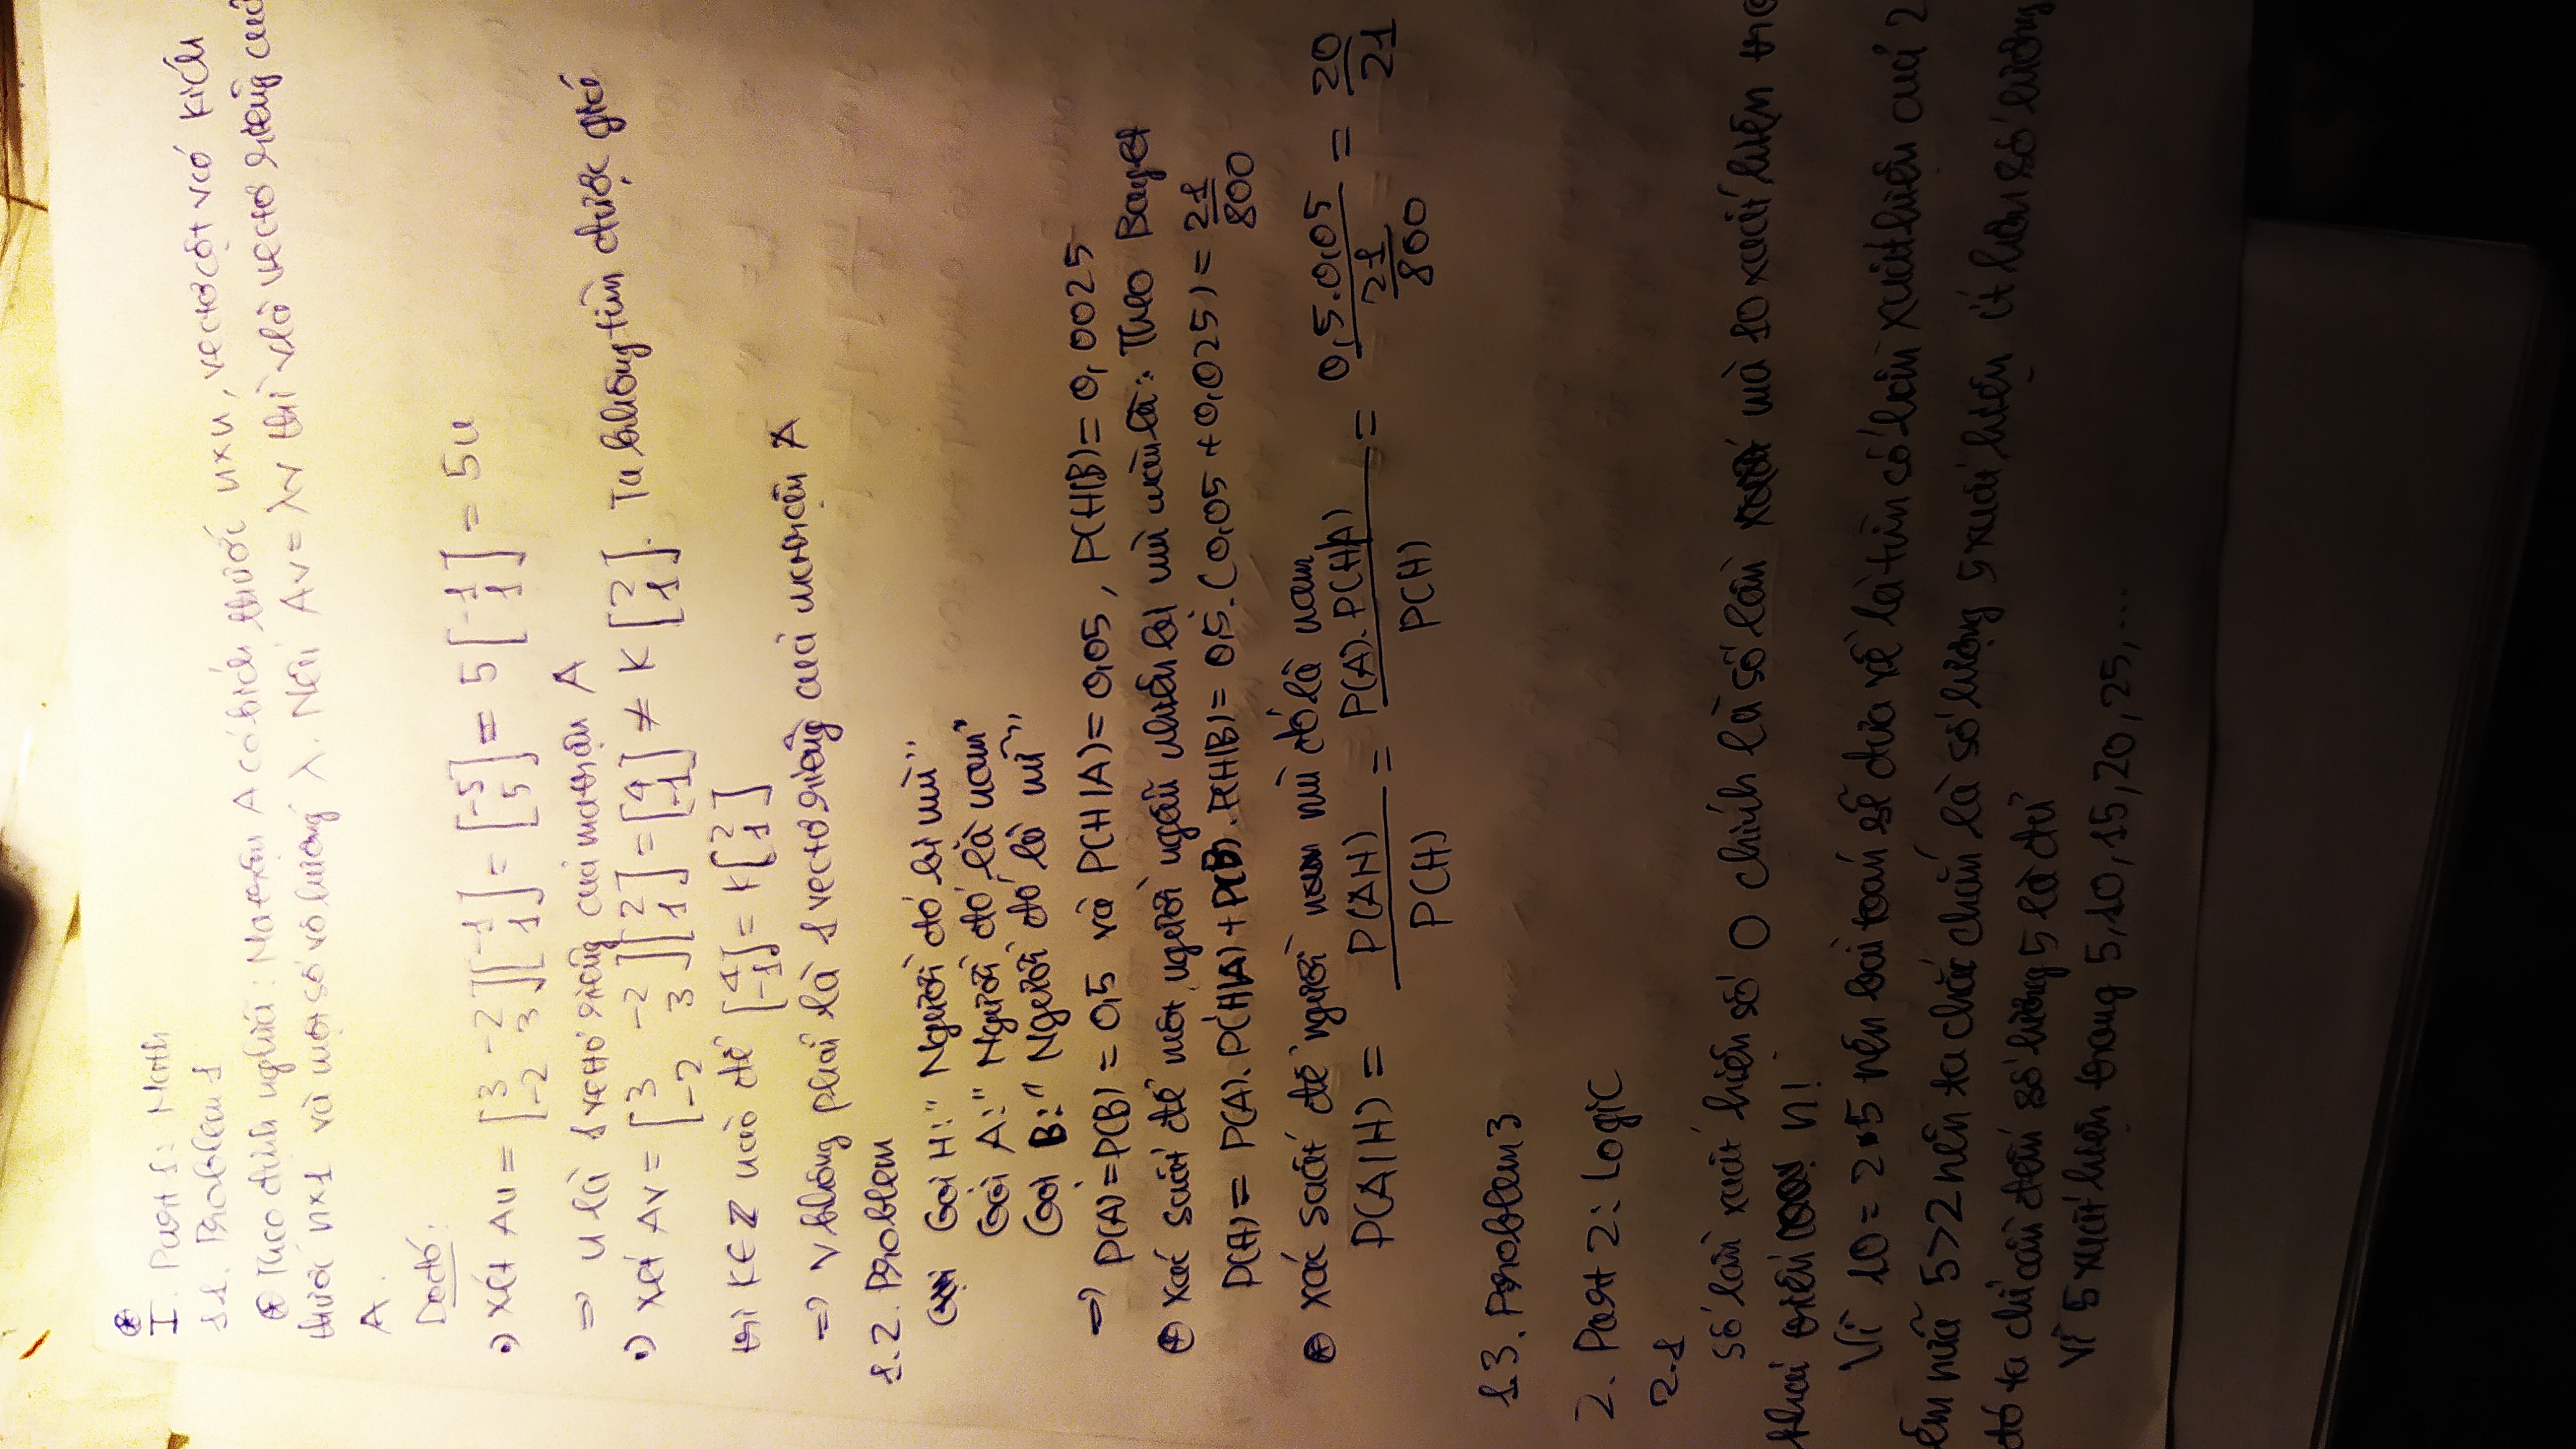 I. Part 1: Math
1.1. Problem 1
Theo định nghĩa: Ma trận A có kích thước n×n, vectơ cột v có kích
thước n×1 và một số vô hướng λ. Nếu Av = λv thì v là vectơ riêng của
A.
Do đó:
Xét Au = [3 -2; -2 3][-1; 1] = [-5; 5] = 5[-1; 1] = 5u
=> u là 1 vectơ riêng của ma trận A
Xét Av = [3 -2; -2 3][2; 1] = [4; -1] ≠ K[2; 1]. Ta không tìm được giá
trị K∈Z nào để [4; -1] = K[2; 1]
=> v không phải là 1 vectơ riêng của ma trận A
1.2. Problem
Gọi H: "Người đó bị mù"
Gọi A: "Người đó là nam"
Gọi B: "Người đó là nữ"
=> P(A) = P(B) = 0,5 và P(H|A) = 0,05, P(H|B) = 0,0025
Xác suất để một người ngẫu nhiên bị mù màu là: Theo Bayet
P(H) = P(A). P(H|A) + P(B). P(H|B) = 0,5.(0,05 + 0,025) = 21/800
Xác suất để người mù đó là nam
P(A|H) = P(AH)/P(H) = P(A). P(H|A)/P(H) = 0,5.0,05/(21/800) = 20/21
1.3. Problem 3
2. Part 2: Logic
2.1
Số lần xuất hiện số 0 chính là số lần mà 10 xuất hiện
khai triển n!
Vì 10 = 2*5 nên bài toán sẽ đưa về là tìm số lần xuất hiện của 2
nữa 5>2 nên ta chắc chắn là số lượng 5 xuất hiện ít hơn số lượng
đó ta chỉ cần đếm số lượng 5 là đủ
Vì 5 xuất hiện trong 5, 10, 15, 20, 25, ...